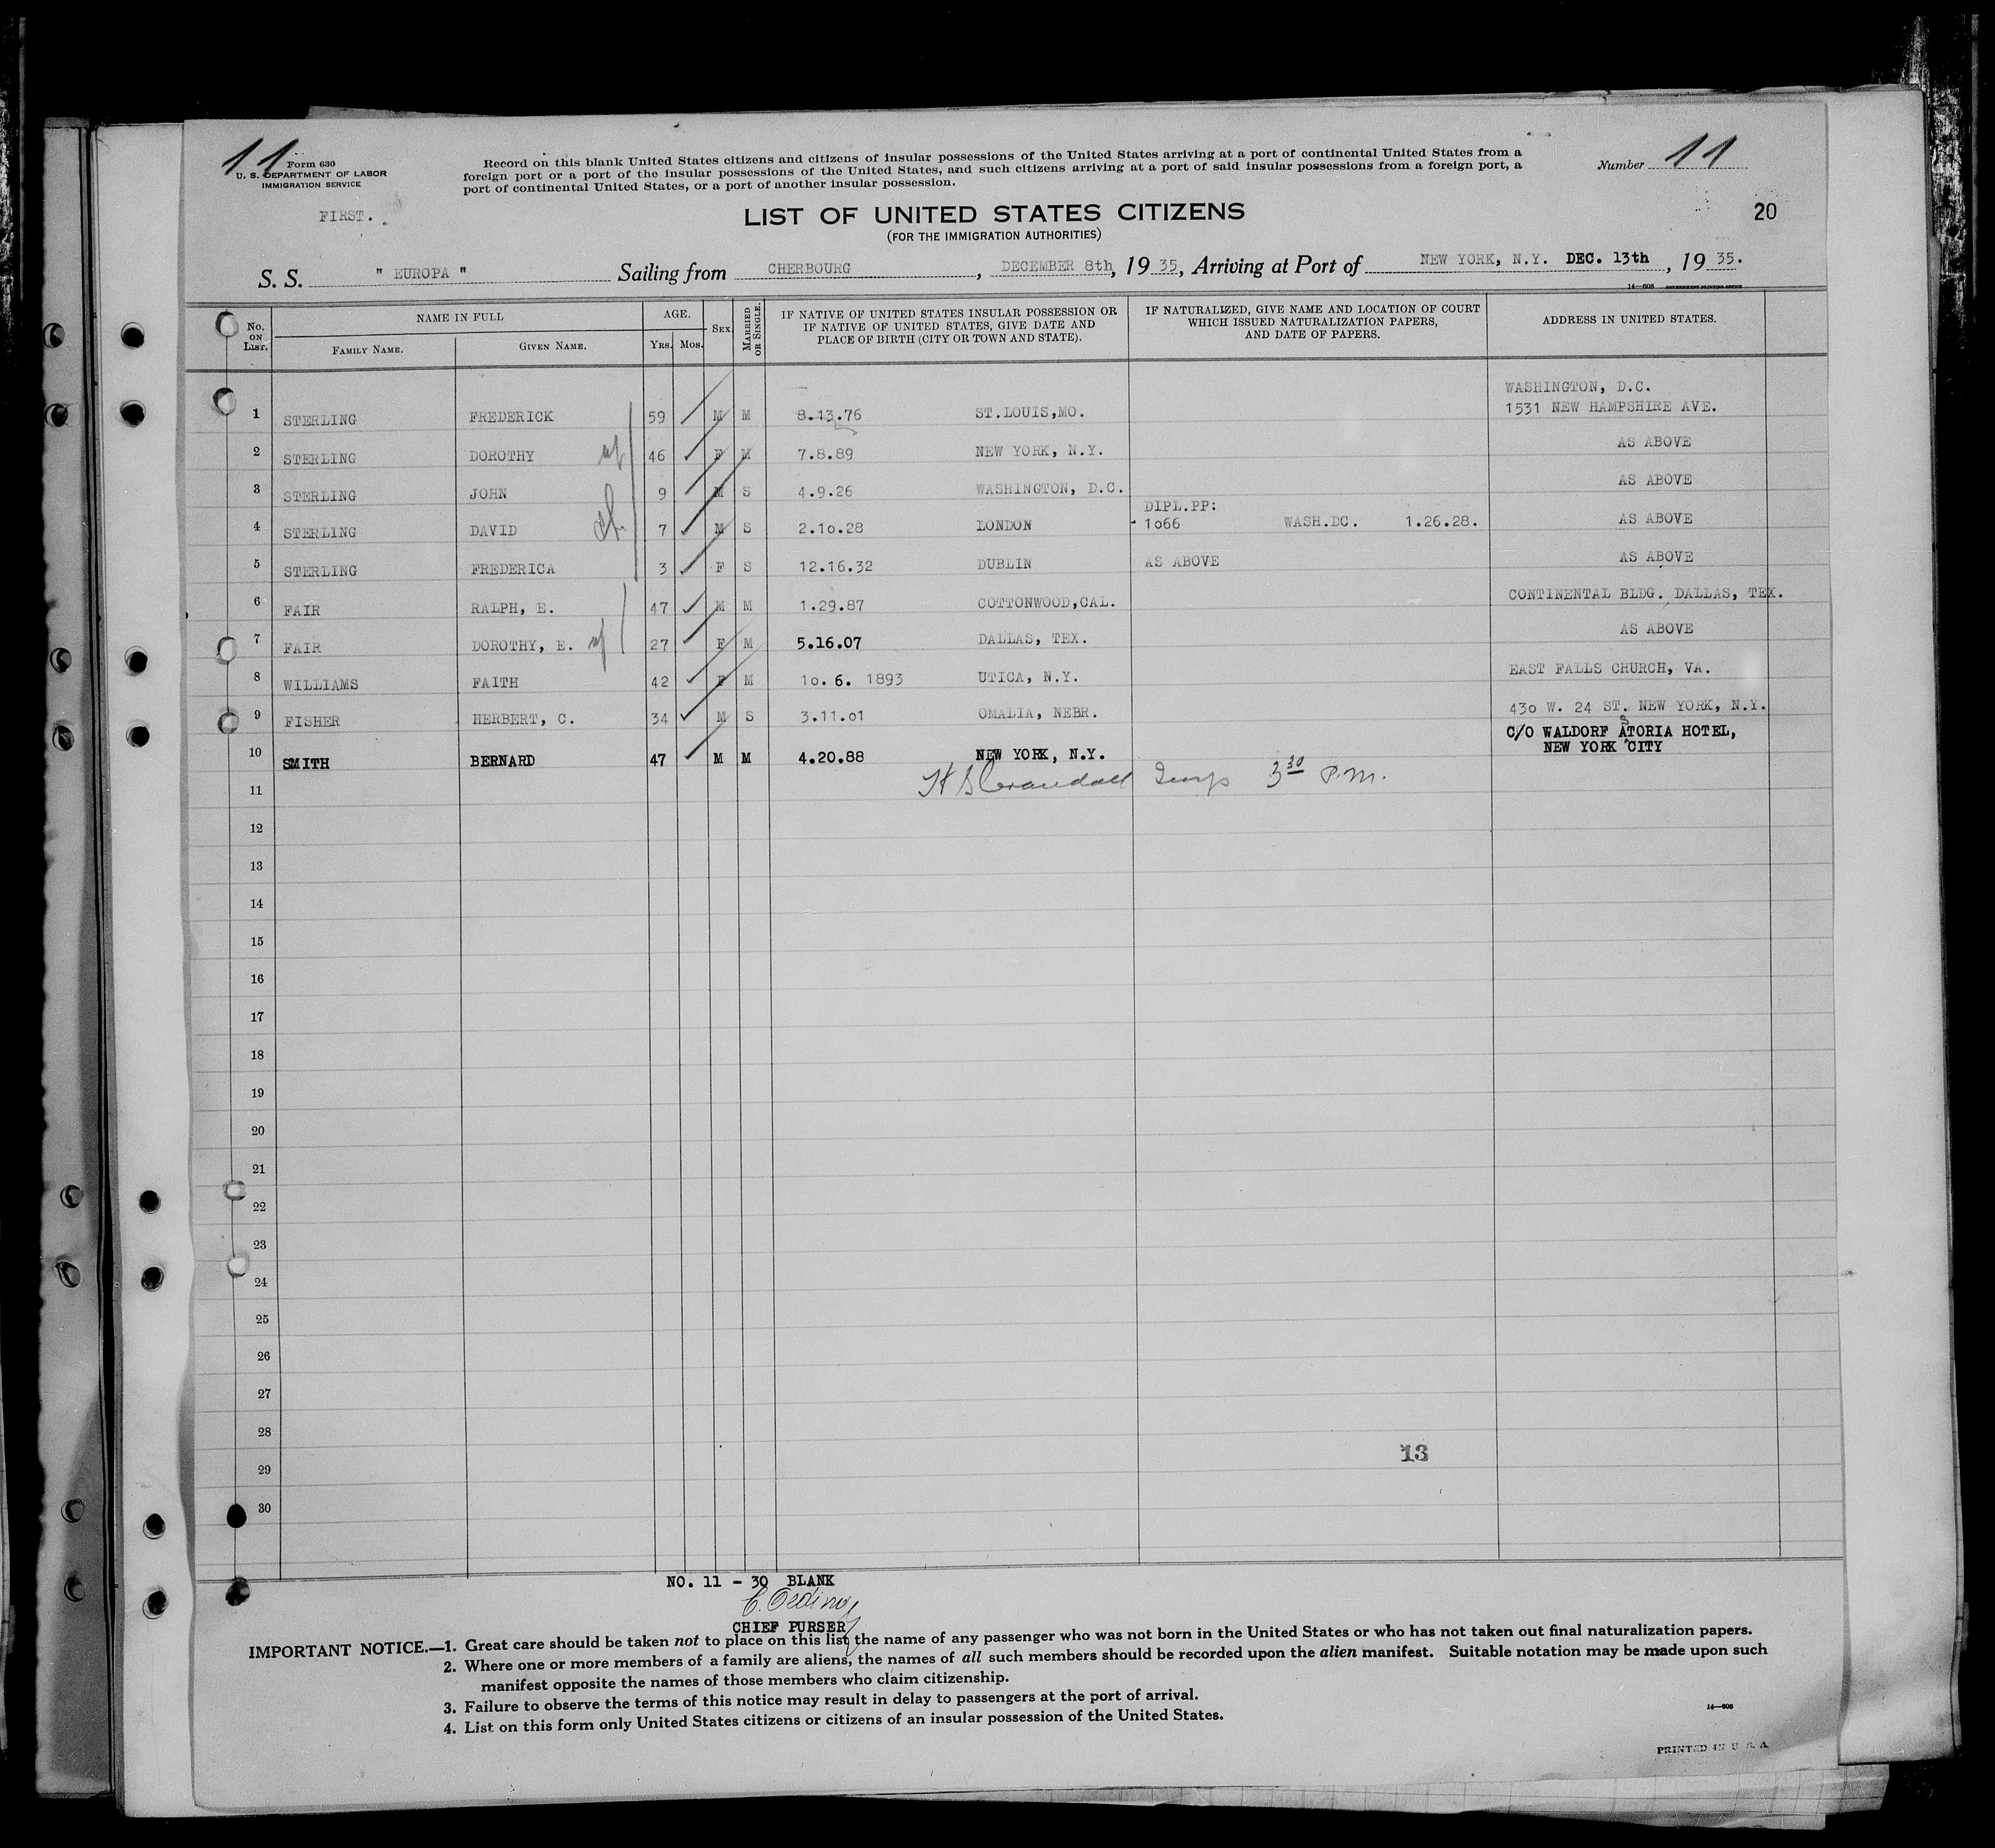 11
Form 630
U. S. DEPARTMENT OF LABOR
IMMIGRATION SERVICE
Record on this blank United States citizens and citizens of insular possessions of the United States arriving at a port of continental United States from a
foreign port or a port of the insular possessions of the United States, and such citizens arriving at a port of said insular possessions from a foreign port, a
port of continental United States, or a port of another insular possession.
Number 11
FIRST.
LIST OF UNITED STATES CITIZENS
20
(FOR THE IMMIGRATION AUTHORITIES)
S. S. " EUROPA " Sailing from CHERBOURG, DECEMBER 8th, 1935, Arriving at Port of NEW YORK, N.Y. DEC. 13th, 1935.
14—608 GOVERNMENT PRINTING OFFICE
No. ON LIST. NAME IN FULL FAMILY NAME. GIVEN NAME. AGE. YRS. MOS. SEX. MARRIED OR SINGLE. IF NATIVE OF UNITED STATES INSULAR POSSESSION OR IF NATIVE OF UNITED STATES, GIVE DATE AND PLACE OF BIRTH (CITY OR TOWN AND STATE). IF NATURALIZED, GIVE NAME AND LOCATION OF COURT WHICH ISSUED NATURALIZATION PAPERS, AND DATE OF PAPERS. ADDRESS IN UNITED STATES.
WASHINGTON, D.C.
1 STERLING FREDERICK 59 M M 8.13.76 ST.LOUIS,MO. 1531 NEW HAMPSHIRE AVE.
2 STERLING DOROTHY wf 46 F M 7.8.89 NEW YORK, N.Y. AS ABOVE
3 STERLING JOHN 9 M S 4.9.26 WASHINGTON, D.C. AS ABOVE
DIPL.PP:
4 STERLING DAVID ch. 7 M S 2.10.28 LONDON 1066 WASH.DC. 1.26.28. AS ABOVE
5 STERLING FREDERICA 3 F S 12.16.32 DUBLIN AS ABOVE AS ABOVE
6 FAIR RALPH, E. 47 M M 1.29.87 COTTONWOOD,CAL. CONTINENTAL BLDG. DALLAS, TEX.
7 FAIR DOROTHY, E. wf 27 F M 5.16.07 DALLAS, TEX. AS ABOVE
8 WILLIAMS FAITH 42 F M 10.6. 1893 UTICA, N.Y. EAST FALLS CHURCH, VA.
9 FISHER HERBERT, C. 34 M S 3.11.01 OMALIA, NEBR. 430 W. 24 ST. NEW YORK, N.Y.
C/O WALDORF ASTORIA HOTEL,
10 SMITH BERNARD 47 M M 4.20.88 NEW YORK, N.Y. NEW YORK CITY
11 H S Crandall Insp 3 30 P.M.
12
13
14
15
16
17
18
19
20
21
22
23
24
25
26
27
28
13
29
30
NO. 11 - 30 BLANK
CHIEF PURSER
IMPORTANT NOTICE.—1. Great care should be taken not to place on this list the name of any passenger who was not born in the United States or who has not taken out final naturalization papers.
2. Where one or more members of a family are aliens, the names of all such members should be recorded upon the alien manifest. Suitable notation may be made upon such
manifest opposite the names of those members who claim citizenship.
3. Failure to observe the terms of this notice may result in delay to passengers at the port of arrival.
4. List on this form only United States citizens or citizens of an insular possession of the United States.
14—608
PRINTED IN U. S. A.